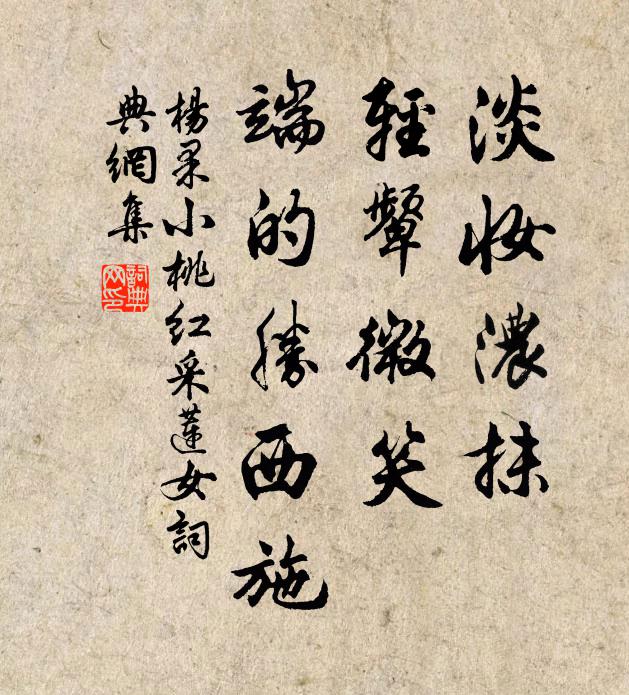 淡妝濃抹
輕顰微笑
端的勝西施
楊果小桃紅采蓮女詞
典網集
詞典網印